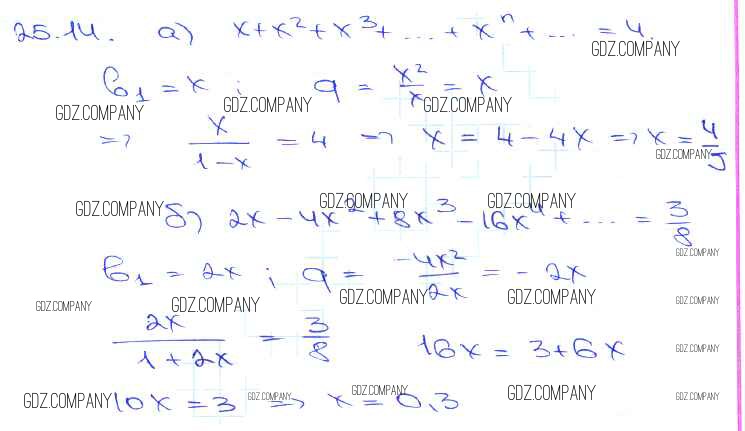 25.14. а) x + x² + x³ + ... + xⁿ + ... = 4.
GDZ.COMPANY
b₁ = x ; q = x²/x = x
GDZ.COMPANY GDZ.COMPANY GDZ.COMPANY
=> x/(1-x) = 4 => x = 4 - 4x => x = 4/5
GDZ.COMPANY
GDZ.COMPANY GDZ.COMPANY GDZ.COMPANY
б) 2x - 4x² + 8x³ - 16x⁴ + ... = 3/8
GDZ.COMPANY
b₁ = 2x ; q = -4x²/2x = -2x
GDZ.COMPANY GDZ.COMPANY GDZ.COMPANY GDZ.COMPANY GDZ.COMPANY
2x/(1+2x) = 3/8 16x = 3 + 6x
GDZ.COMPANY
GDZ.COMPANY 10x = 3 GDZ.COMPANY => x = 0,3 GDZ.COMPANY GDZ.COMPANY GDZ.COMPANY